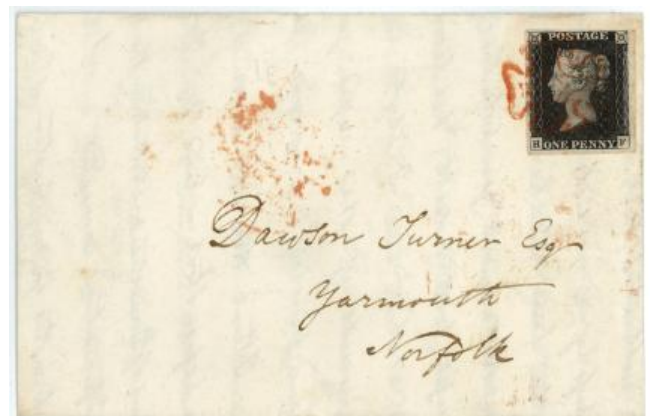 POSTAGE
H ONE PENNY F
Dawson Turner Esqr
Yarmouth
Norfolk